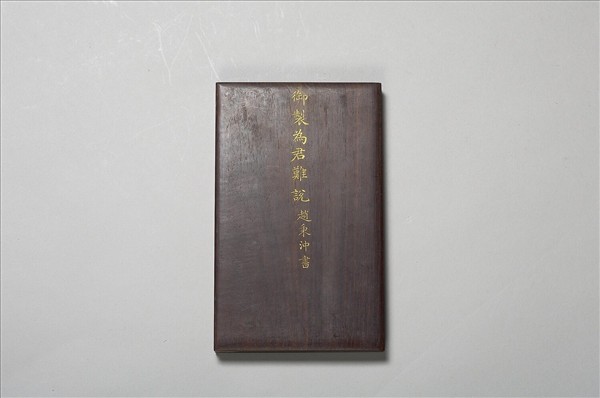 御製為君難說 趙秉沖書